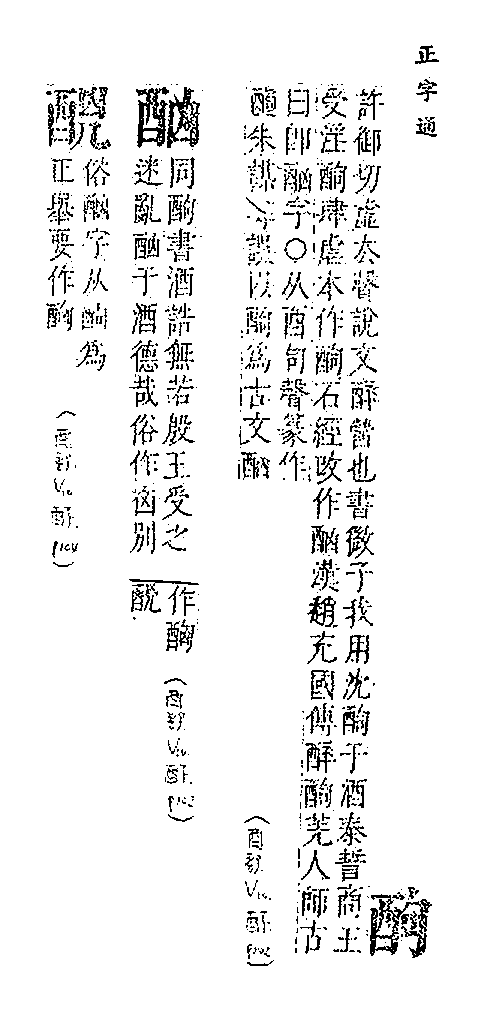 正字通
䣱
許御切虛去聲說文醉醟也書微子我用沈䣱于酒泰誓商王
受淫䣱肆虐本作䣱石經改作酗漢趙充國傳醉䣱羌人師古
曰即酗字○从酉句聲篆作
朱謀 誤以䣱為古文酗
(酉部 p102)
酗
同䣱書酒誥無若殷王受之
迷亂酗于酒德哉俗作 別
作
(酉部 p102)
俗酗字从 為
正舉要作䣱
(酉部 p104)